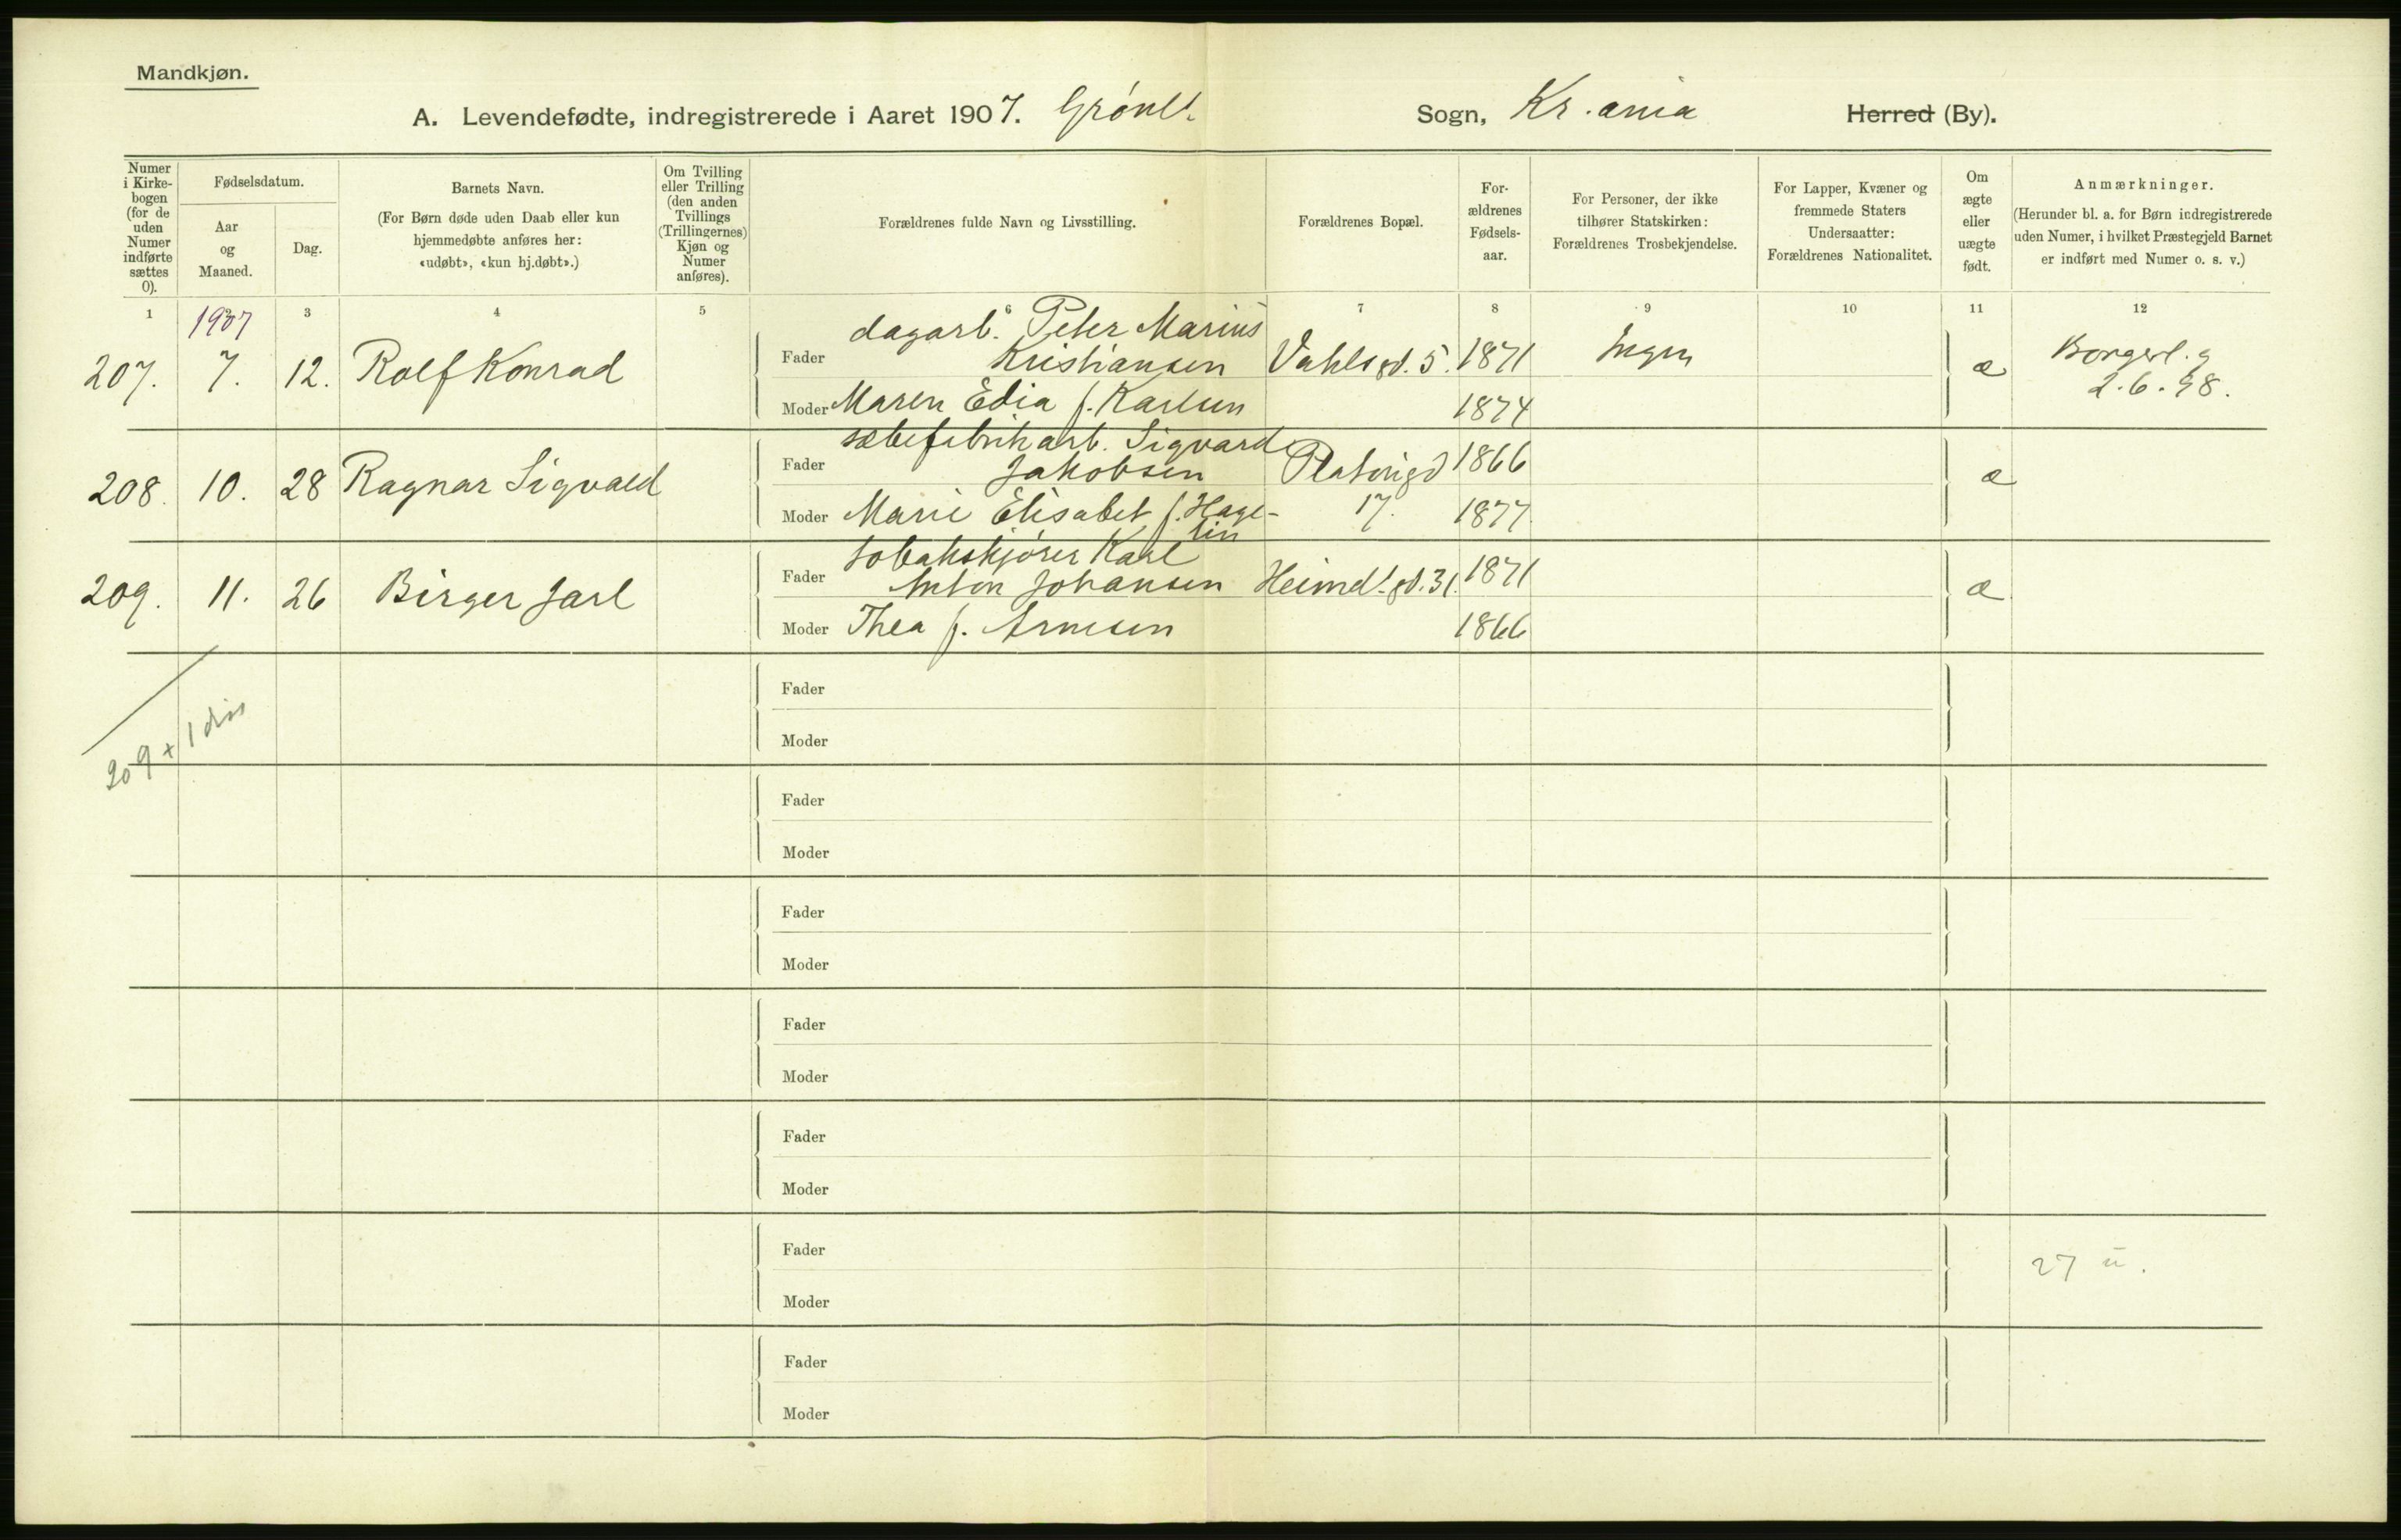 Mandkjøn.
A. Levendefødte, indregistrerede i Aaret 1907. Grønl. Sogn, Kr.ania Herred (By).
Numer i Kirkebogen (for de uden Numer indførte sættes 0).
Fødselsdatum.
Aar og Maaned.
Dag.
Barnets Navn.
(For Børn døde uden Daab eller kun
hjemmedøbte anføres her:
«udøbt», «kun hj.døbt».)
Om Tvilling
eller Trilling
(den anden
Tvillings
(Trillingernes)
Kjøn og
Numer
anføres).
Forældrenes fulde Navn og Livsstilling.
Forældrenes Bopæl.
For-
ældrenes
Fødsels-
aar.
For Personer, der ikke
tilhører Statskirken:
Forældrenes Trosbekjendelse.
For Lapper, Kvæner og
fremmede Staters
Undersaatter:
Forældrenes Nationalitet.
Om
ægte
eller
uægte
født.
Anmærkninger.
(Herunder bl. a. for Børn indregistrerede
uden Numer, i hvilket Præstegjeld Barnet
er indført med Numer o. s. v.)
1 2 3 4 5 6 7 8 9 10 11 12
1907
207. 7. 12. Rolf Konrad
Fader dagarb. Peter Marius
Kristiansen Vahlsgd. 5. 1871 Ingen æ Borgerl. g
2.6.98.
Moder Maren Edia f. Karlsen 1874
208. 10. 28 Ragnar Sigvald
Fader sæbefabrikarb. Sigvard
Jakobsen Platousgd 1866 æ
Moder Marie Elisabet f. Hage-
lin 17. 1877.
209. 11. 26 Birger Jarl
Fader tobakskjører Karl
Anton Johansen Heimd.gd. 31. 1871 æ
Moder Thea f. Arnesen 1866
209 + 1 dis
Fader
Moder
Fader
Moder
Fader
Moder
Fader
Moder
Fader
Moder
Fader
Moder
27 u.
Fader
Moder